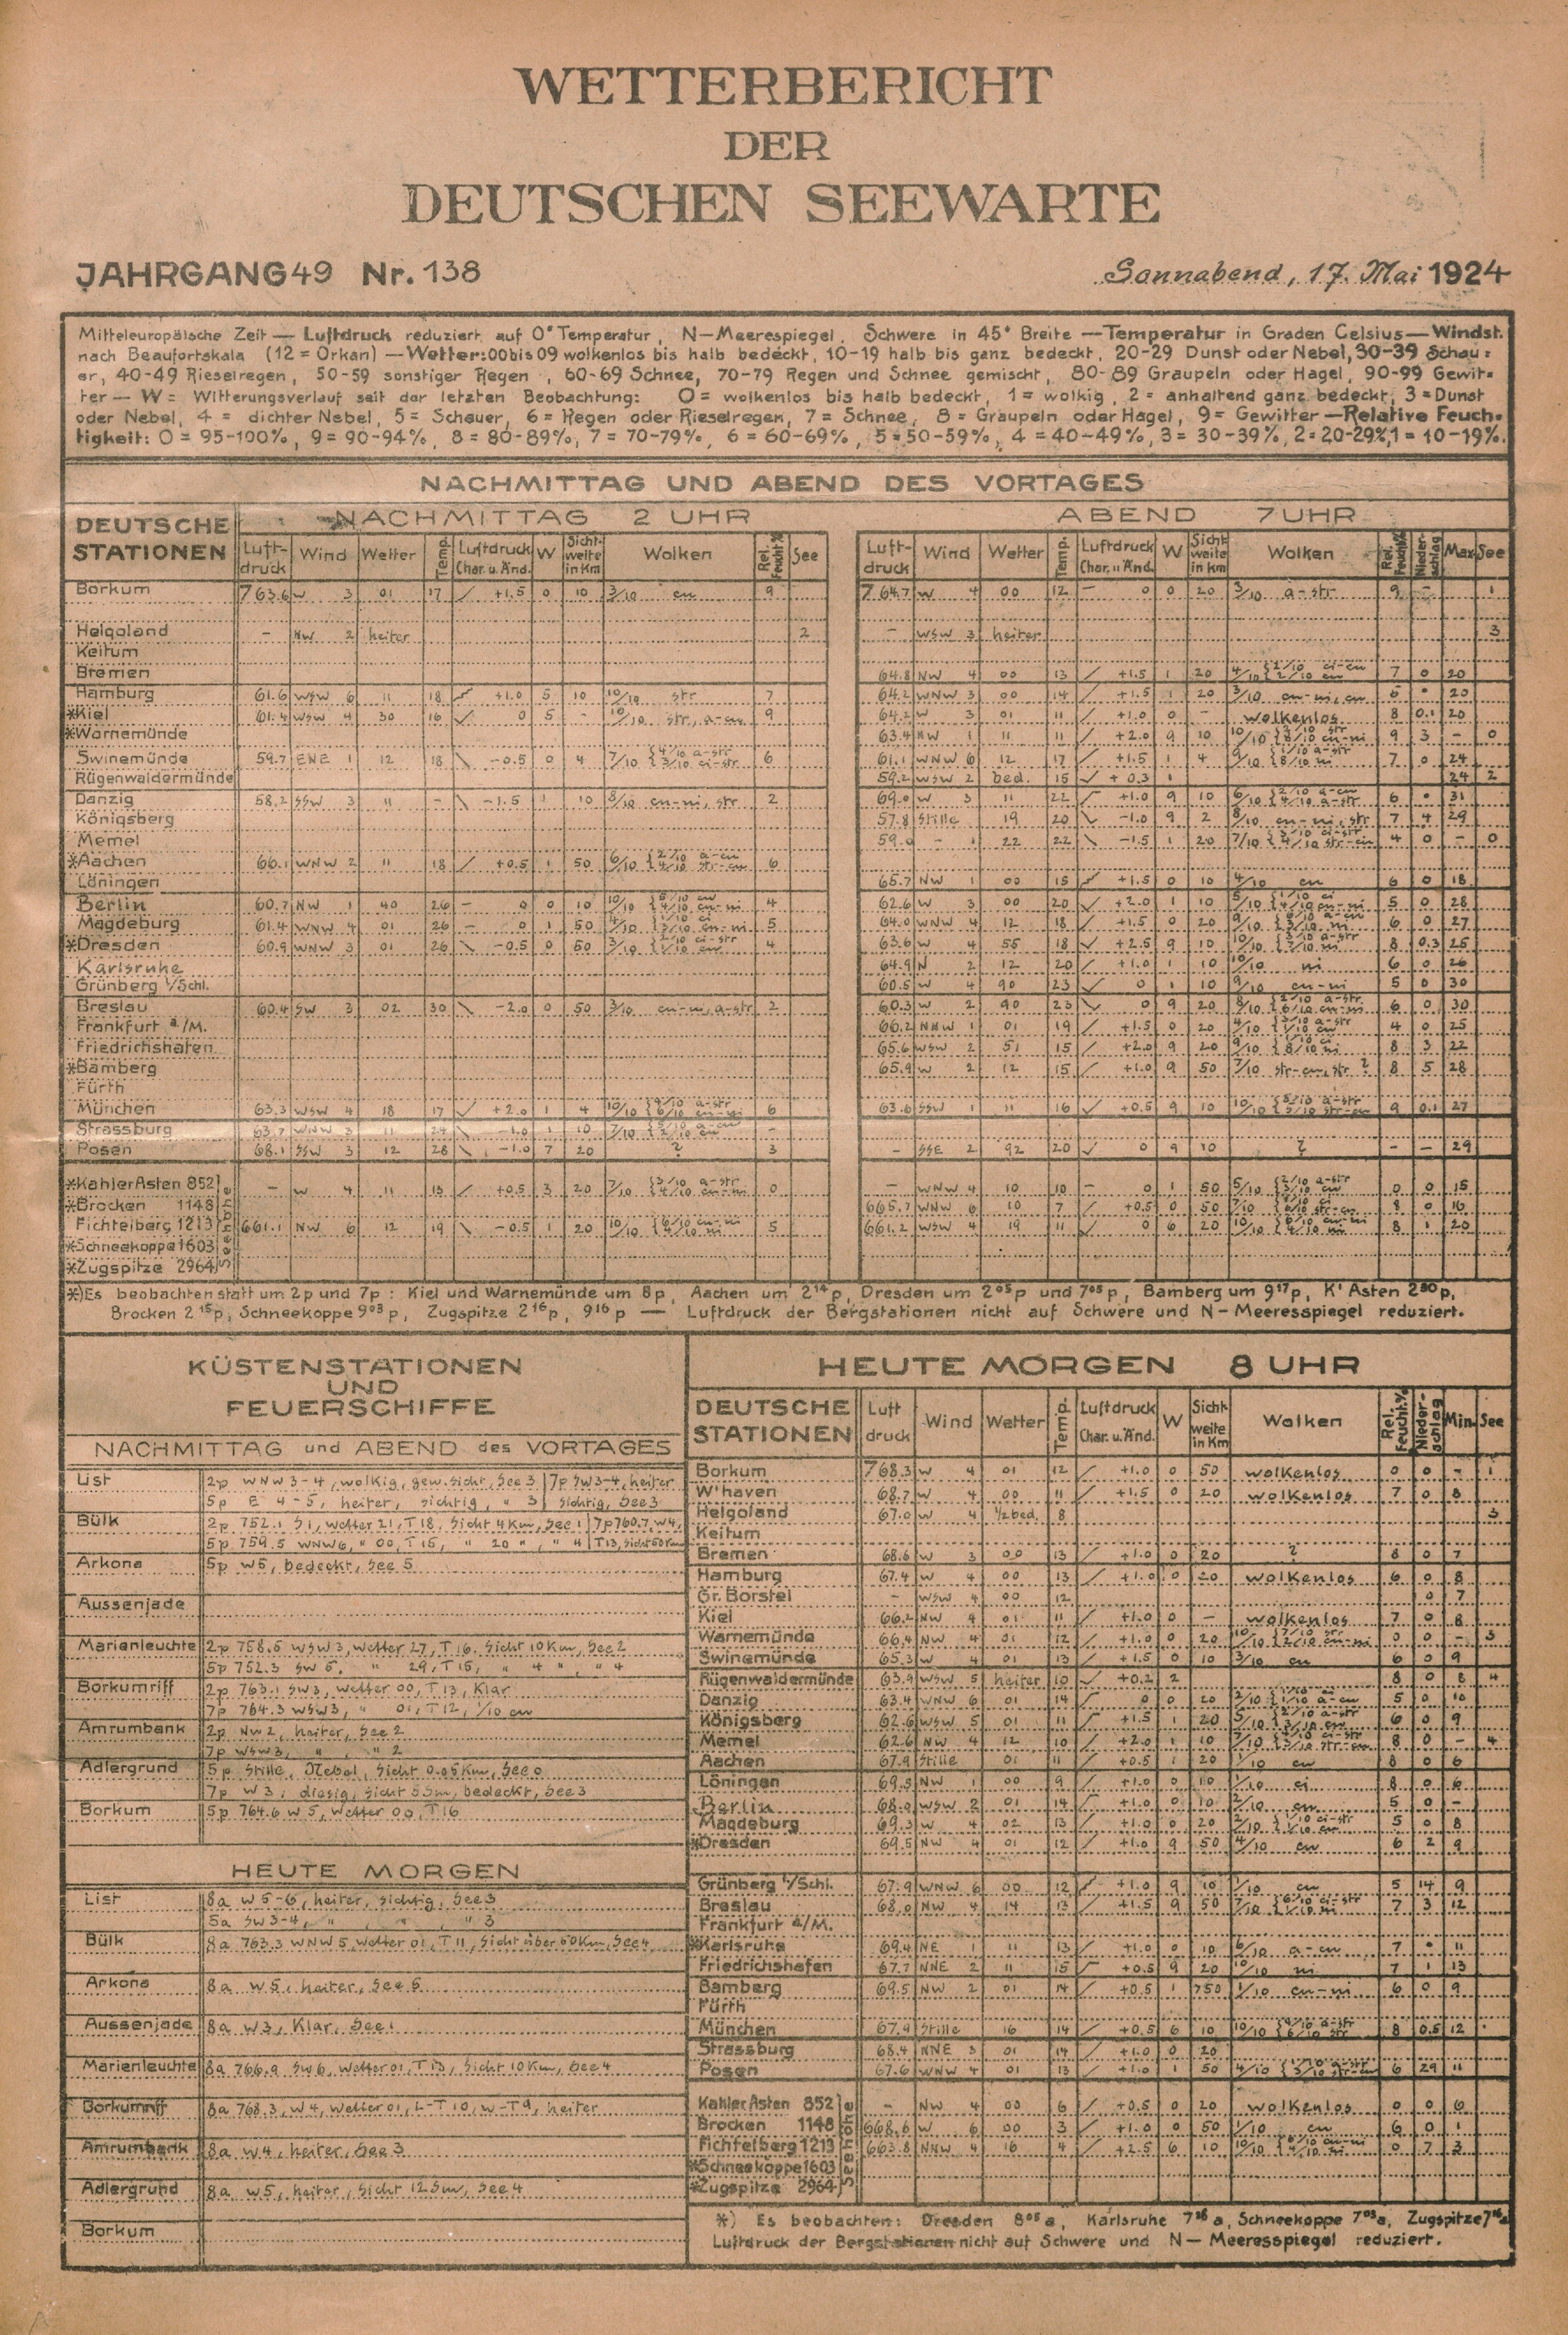 WETTERBERICHT
DER
DEUTSCHEN SEEWARTE
JAHRGANG 49 Nr. 138
Sonnabend, 17. Mai 1924
Mitteleuropäische Zeit — Luftdruck reduziert auf 0° Temperatur, N—Meerespiegel, Schwere in 45° Breite — Temperatur in Graden Celsius — Windst.
nach Beaufortskala (12 = Orkan) — Wetter: 00 bis 09 wolkenlos bis halb bedeckt, 10-19 halb bis ganz bedeckt, 20-29 Dunst oder Nebel, 30-39 Schau=
er, 40-49 Rieselregen, 50-59 sonstiger Regen, 60-69 Schnee, 70-79 Regen und Schnee gemischt, 80-89 Graupeln oder Hagel, 90-99 Gewit=
ter — W = Witterungsverlauf seit der letzten Beobachtung: 0 = wolkenlos bis halb bedeckt, 1 = wolkig, 2 = anhaltend ganz bedeckt, 3 = Dunst
oder Nebel, 4 = dichter Nebel, 5 = Schauer, 6 = Regen oder Rieselregen, 7 = Schnee, 8 = Graupeln oder Hagel, 9 = Gewitter — Relative Feuch=
tigkeit: 0 = 95-100%, 9 = 90-94%, 8 = 80-89%, 7 = 70-79%, 6 = 60-69%, 5 = 50-59%, 4 = 40-49%, 3 = 30-39%, 2 = 20-29%, 1 = 10-19%.
NACHMITTAG UND ABEND DES VORTAGES
DEUTSCHE STATIONEN
NACHMITTAG 2 UHR
ABEND 7 UHR
Luft-druck Wind Wetter Temp. Luftdruck Char. u. Änd. W Sicht-weite in Km Wolken Rel. Feucht.% See
Luft-druck Wind Wetter Temp. Luftdruck Char. u. Änd. W Sicht weite in Km Wolken Rel. Feucht.% Nieder-schlag Max See
Borkum 763.6 W 3 01 17 +1.5 0 10 3/10 cu 9 764.7 W 4 00 12 — 0 0 20 3/10 a-str 9 — 1
Helgoland – NW 2 heiter 2 – WSW 3 heiter 3
Keitum
Bremen 64.8 NW 4 00 13 +1.5 1 20 4/10 {2/10 ci-cu 2/10 cu 7 0 20
Hamburg 61.6 WSW 6 11 18 +1.0 5 10 10/10 str 7 64.2 WNW 3 00 14 +1.5 1 20 3/10 cu-ni, cu 6 20
*Kiel 61.4 WSW 4 30 16 0 5 – 10/10 str, a-cu 9 64.2 W 3 01 11 +1.0 0 – wolkenlos 8 0.1 20
*Warnemünde 63.4 NW 1 11 11 +2.0 9 10 10/10 9 3 – 0
Swinemünde 59.7 ENE 1 12 18 -0.5 0 4 7/10 {4/10 a-str 3/10 ci-str 6 61.1 WNW 6 12 17 +1.5 1 4 7 0 24
Rügenwaldermünde 59.2 WSW 2 bed. 15 +0.3 1 24 2
Danzig 58.2 SSW 3 11 – -1.5 1 10 8/10 cu-ni, str 2 69.0 W 3 11 22 +1.0 9 10 6/10 {2/10 a-cu 4/10 a-str 6 31
Königsberg 57.8 Stille 19 20 -1.0 9 2 8/10 cu-ni, str 7 4 29
Memel 59.0 – 1 22 22 -1.5 1 20 7/10 4 0 – 0
*Aachen 66.1 WNW 2 11 18 +0.5 1 50 6/10 {2/10 a-cu 4/10 str-cu 6
Löningen 65.7 NW 1 00 15 +1.5 0 10 4/10 cu 6 0 18
Berlin 60.7 NW 1 40 26 – 0 0 10 10/10 4 62.6 W 3 00 20 +2.0 1 10 5 0 28
Magdeburg 61.4 WNW 4 01 26 – 0 1 50 4/10 {1/10 ci 3/10 cu-ni 5 64.0 WNW 4 12 18 +1.5 0 20 6 0 27
*Dresden 60.9 WNW 3 01 26 -0.5 0 50 3/10 {2/10 ci-str 1/10 cu 4 63.6 W 4 55 18 +2.5 9 10 10/10 8 0.3 25
Karlsruhe 64.9 N 2 12 20 +1.0 1 10 10/10 ni 6 0 26
Grünberg i/Schl. 60.5 W 4 90 23 0 1 10 9/10 cu-ni 5 0 30
Breslau 60.4 SW 3 02 30 -2.0 0 50 3/10 cu-ni, a-str 2 60.3 W 2 90 23 0 9 20 8/10 {2/10 a-str 6/10 cu-ni 6 0 30
Frankfurt a/M. 66.2 NNW 1 01 19 +1.5 0 20 4/10 {3/10 a-str 1/10 cu 4 0 25
Friedrichshafen 65.6 WSW 2 51 15 +2.0 9 20 9/10 {1/10 ci 8/10 ni 8 3 22
*Bamberg 65.9 W 2 12 15 +1.0 9 50 7/10 str-cu, str ? 8 5 28
Fürth
München 63.3 WSW 4 18 17 +2.0 1 4 10/10 6 63.6 SSW 1 11 16 +0.5 9 10 10/10 9 0.1 27
Strassburg 63.7 WNW 3 11 24 -1.0 1 10 7/10 {5/10 a-cu 2/10 cu –
Posen 68.1 SSW 3 12 28 -1.0 7 20 ? 3 – SSE 2 92 20 0 9 10 ? – – 29
*Kahler Asten 852 – W 4 11 13 +0.5 3 20 7/10 {3/10 a-str 4/10 cu-ni 0 – WNW 4 10 10 – 0 1 50 5/10 0 0 15
*Brocken 1148 665.7 WNW 6 10 7 +0.5 0 50 7/10 8 0 16
Fichtelberg 1213 661.1 NW 6 12 19 -0.5 1 20 10/10 {6/10 cu-ni 4/10 ni 5 661.2 WSW 4 19 11 0 6 20 10/10 {6/10 cu-ni 4/10 ni 8 1 20
*Schneekoppe 1603
*Zugspitze 2964
Seehöhe
*) Es beobachten statt um 2p und 7p: Kiel und Warnemünde um 8p, Aachen um 2¹⁴p, Dresden um 2⁰⁵p und 7⁰⁵p, Bamberg um 9¹⁷p, K' Asten 2³⁰p,
Brocken 2¹⁵p, Schneekoppe 9⁰³p, Zugspitze 2¹⁶p, 9¹⁶p — Luftdruck der Bergstationen nicht auf Schwere und N-Meeresspiegel reduziert.
KÜSTENSTATIONEN
UND
FEUERSCHIFFE
NACHMITTAG und ABEND des VORTAGES
List 2p WNW 3-4, wolkig, gew. Sicht, See 3 | 7p SW 3-4, heiter
5p E 4-5, heiter, sichtig, " 3 | sichtig, See 3
Bülk 2p 752.1 S1, Wetter 21, T 18, Sicht 4 Km, See 1 | 7p 760.7, W4,
5p 759.5 WNW 6, " 00, T 15, " 20 ", " 4 | T 13, Sicht 50 Km
Arkona 5p W 5, bedeckt, See 5
Aussenjade
Marienleuchte 2p 758.5 WSW 3, Wetter 27, T 16, Sicht 10 Km, See 2
5p 752.3 SW 5, " 29, T 15, " 4 ", " 4
Borkumriff 2p 763.1 SW 3, Wetter 00, T 13, Klar
7p 764.3 WSW 3, " 01, T 12, 1/10 cu
Amrumbank 2p NW 2, heiter, See 2
7p WSW 3, " , " 2
Adlergrund 5p Stille, Nebel, Sicht 0.05 Km, See 0
7p W 3, diesig, Sicht 5 Sm, bedeckt, See 3
Borkum 5p 764.6 W 5, Wetter 00, T 16
HEUTE MORGEN
List 8a W 5-6, heiter, sichtig, See 3
5a SW 3-4, " , " , " 3
Bülk 8a 763.3 WNW 5, Wetter 01, T 11, Sicht über 50 Km, See 4
Arkona 8a W 5, heiter, See 5
Aussenjade 8a W 3, Klar, See 1
Marienleuchte 8a 766.9 SW 6, Wetter 01, T 13, Sicht 10 Km, See 4
Borkumriff 8a 768.3, W 4, Wetter 01, L-T 10, W-T 9, heiter
Amrumbank 8a W 4, heiter, See 3
Adlergrund 8a W 5, heiter, Sicht 12 Sm, See 4
Borkum
HEUTE MORGEN 8 UHR
DEUTSCHE STATIONEN Luft druck Wind Wetter Temp. Luftdruck Char. u. Änd. W Sicht weite in Km Wolken Rel. Feucht.% Nieder-schlag Min. See
Borkum 768.3 W 4 01 12 +1.0 0 50 wolkenlos 0 0 – 1
W'haven 68.7 W 4 00 11 +1.5 0 20 wolkenlos 7 0 8
Helgoland 67.0 W 4 ½ bed. 8 3
Keitum
Bremen 68.6 W 3 00 13 +1.0 0 20 ? 8 0 7
Hamburg 67.4 W 4 00 13 +1.0 0 20 wolkenlos 6 0 8
Gr. Borstel – WSW 4 00 12 0 7
Kiel 66.2 NW 4 01 11 +1.0 0 – wolkenlos 7 0 8
Warnemünde 66.4 NW 4 01 12 +1.0 0 20 0 0 – 3
Swinemünde 65.3 W 4 01 13 +1.5 0 10 3/10 cu 6 0 9
Rügenwaldermünde 63.9 WSW 5 heiter 10 +0.2 2 8 0 8 4
Danzig 63.4 WNW 6 01 14 0 0 20 5 0 10
Königsberg 62.6 WSW 5 01 11 +1.5 1 20 6 0 9
Memel 62.6 NW 4 12 10 +2.0 1 10 8 0 – 4
Aachen 67.9 Stille 01 11 +0.5 1 20 1/10 cu 8 0 6
Löningen 69.5 NW 1 00 9 +1.0 0 10 1/10 ci 8 0 6
Berlin 68.0 WSW 2 01 14 +1.0 0 10 2/10 cu 5 0 –
Magdeburg 69.3 W 4 02 13 +1.0 0 20 2/10 {1/10 ci-str 1/10 cu 5 0 8
*Dresden 69.5 NW 4 01 12 +1.0 9 50 4/10 cu 6 2 9
Grünberg i/Schl. 67.9 WNW 6 00 12 +1.0 9 10 1/10 cu 5 14 9
Breslau 68.0 NW 4 14 13 +1.5 9 50 7/10 7 3 12
Frankfurt a/M.
*Karlsruhe 69.4 NE 1 11 13 +1.0 0 10 6/10 a-cu 7 11
Friedrichshafen 67.7 NNE 2 11 15 +0.5 9 20 10/10 ni 7 1 13
Bamberg 69.5 NW 2 01 14 +0.5 1 750 1/10 cu-ni 6 0 9
Fürth
München 67.9 Stille 16 14 +0.5 6 10 10/10 {4/10 a-str 6/10 str 8 0.5 12
Strassburg 68.4 NNE 3 01 14 +1.0 0 20
Posen 67.6 WNW 4 01 13 +1.0 1 50 4/10 {1/10 a-str 3/10 str-cu 6 29 11
Kahler Asten 852 – NW 4 00 6 +0.5 0 20 wolkenlos 0 0 6
Brocken 1148 668.6 W 6 00 3 +1.0 0 50 1/10 cu 6 0 1
Fichtelberg 1213 663.8 NNW 4 16 4 +2.5 6 10 10/10 {6/10 cu-ni 4/10 ni 0 7 3
*Schneekoppe 1603
*Zugspitze 2964
Seehöhe
*) Es beobachten: Dresden 8⁰⁵a, Karlsruhe 7²⁶a, Schneekoppe 7⁰³a, Zugspitze 7¹⁶a
Luftdruck der Bergstationen nicht auf Schwere und N— Meeresspiegel reduziert.